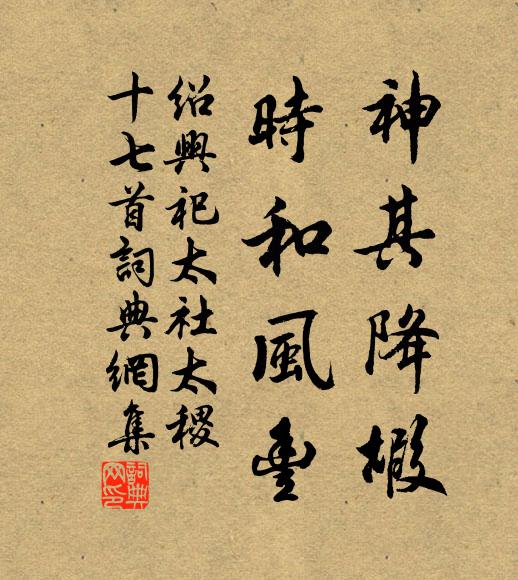 神其降嘏
時和風豊
紹興祀太社太稷
十七首詞典網集
詞典網印